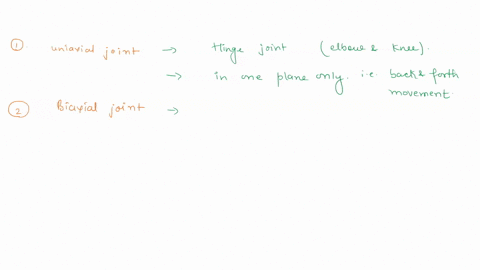 ① uniaxial joint → Hinge joint (elbow & knee).
→ in one plane only. i.e. back & forth
movement.
② Biaxial joint →